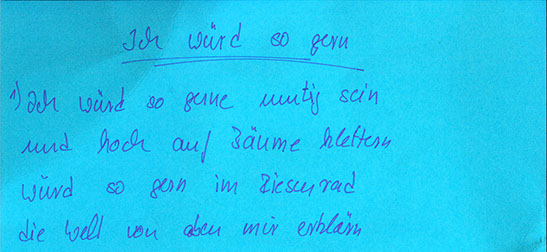 Ich würd so gern
1) Ich würd so gerne mutig sein
und hoch auf Bäume klettern
würd so gern im Riesenrad
die Welt von oben mir erklärn